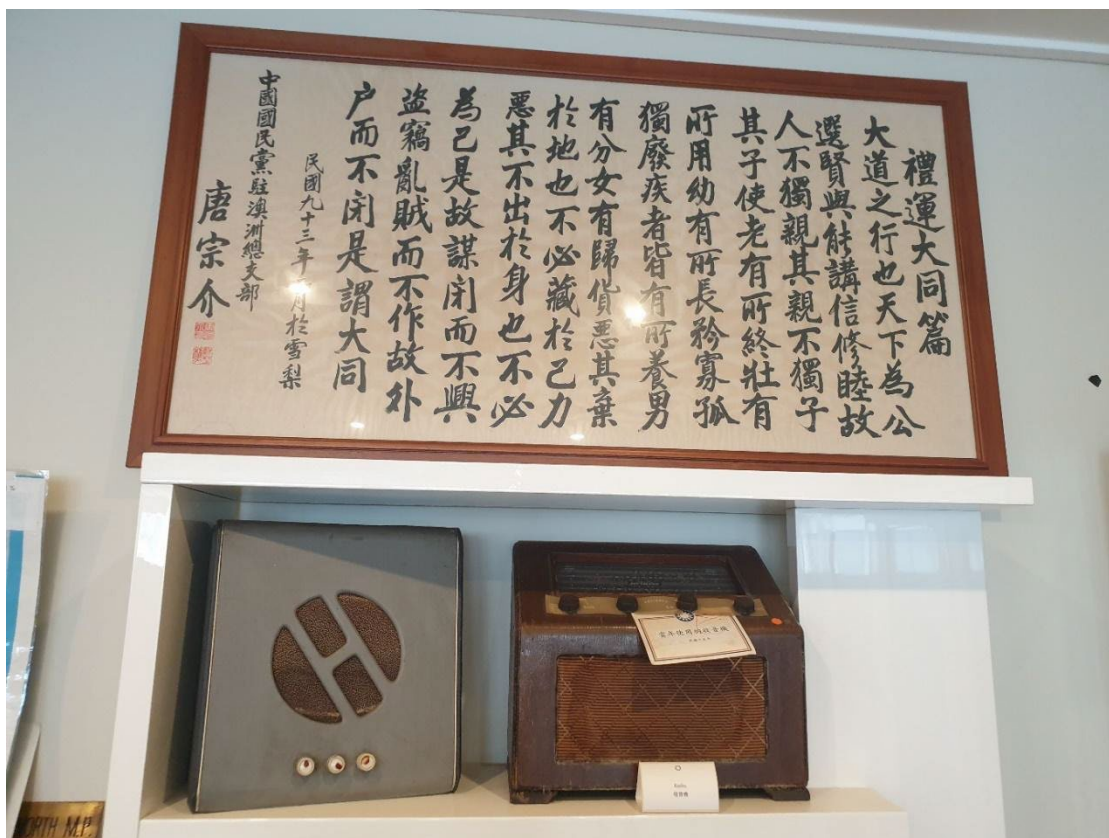 禮運大同篇
大道之行也天下為公
選賢與能講信修睦故
人不獨親其親不獨子
其子使老有所終壯有
所用幼有所長矜寡孤
獨廢疾者皆有所養男
有分女有歸貨惡其棄
於地也不必藏於己力
惡其不出於身也不必
為己是故謀閉而不興
盜竊亂賊而不作故外
户而不閉是謂大同
民國九十三年月於雪梨
中國國民黨駐澳洲總支部
唐宗介
當年使用的收音機
Radio
收音機
ORTH M.P.